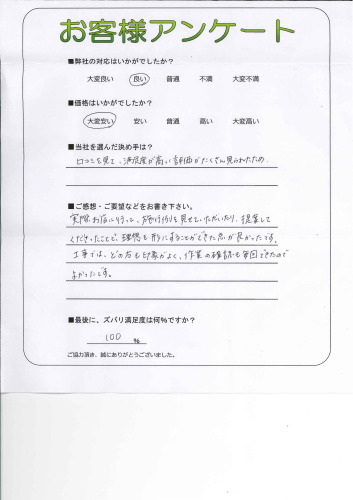 お客様アンケート
■弊社の対応はいかがでしたか？
大変良い 良い 普通 不満 大変不満
■価格はいかがでしたか？
大変安い 安い 普通 高い 大変高い
■当社を選んだ決め手は？
口コミを見て、満足度が高い評価がたくさん見られたため。
■ご感想・ご要望などをお書き下さい。
実際お店に行って、を見せていただいたり、提案して
くださったことで、理想を形にすることができた点が良かったです。
工事では、どの方も印象がよく、作業の確認も毎回できたので
よかったです。
■最後に、ズバリ満足度は何%ですか？
100 %
ご協力頂き、誠にありがとうございました。